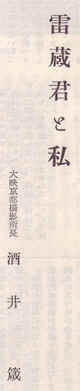 雷蔵君と私
大映京都撮影所長
酒井箴